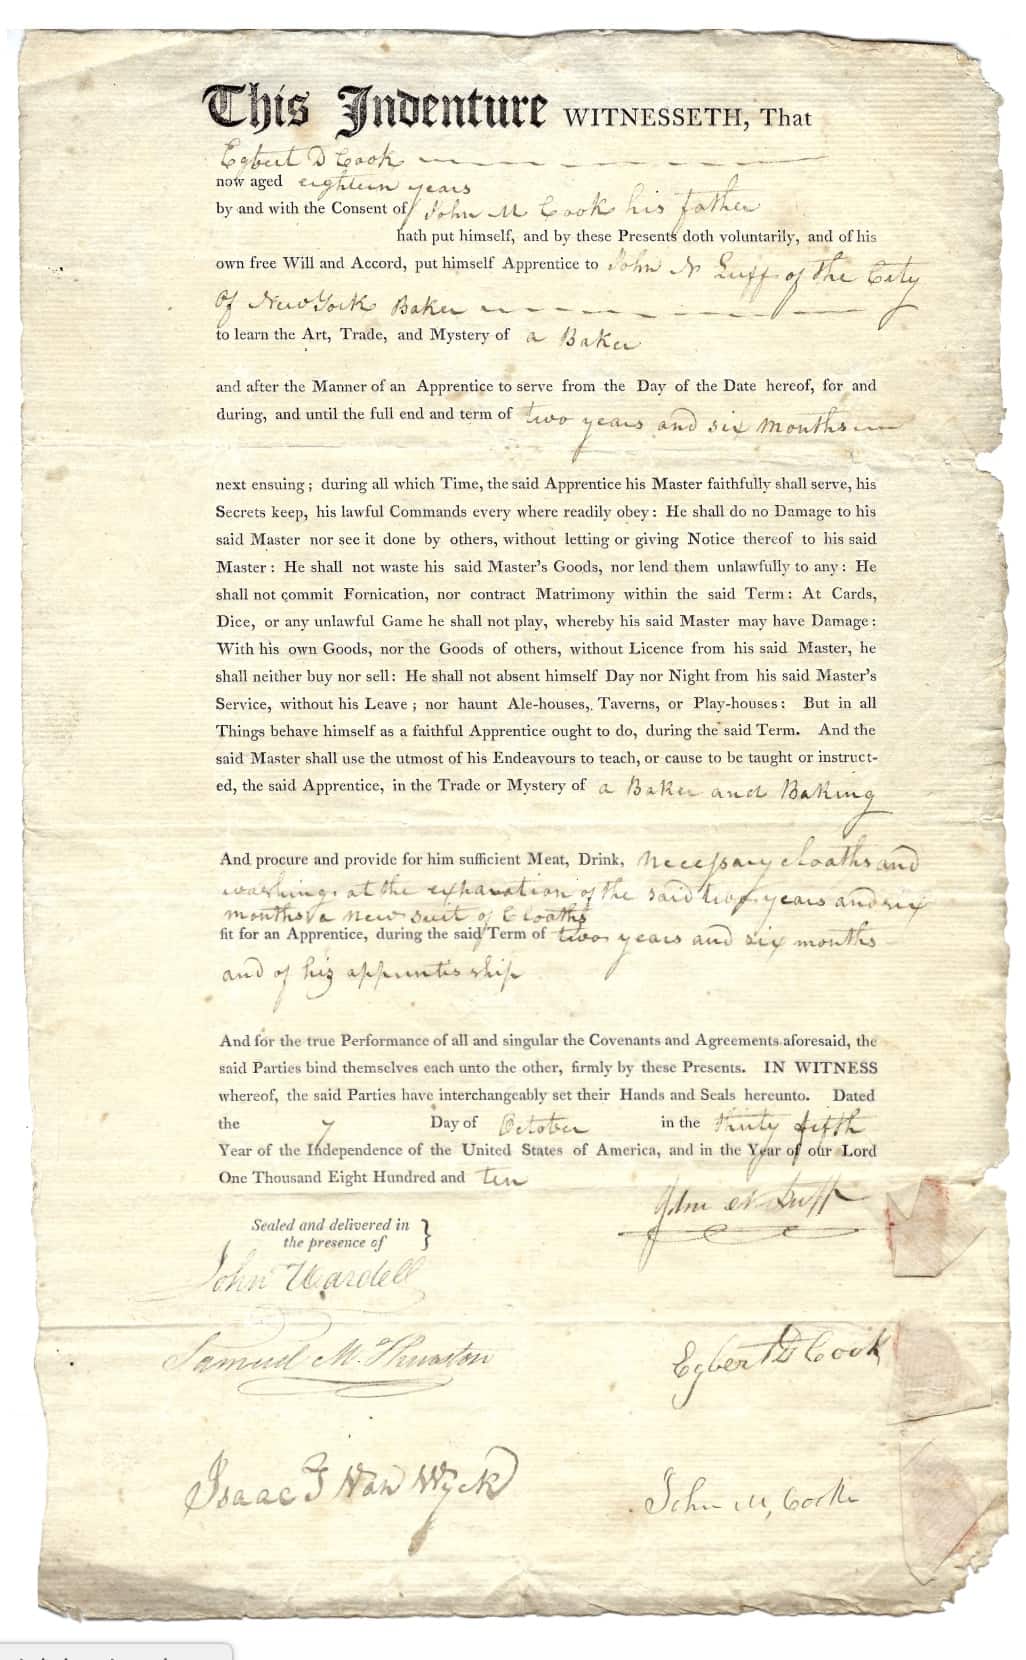 This Indenture WITNESSETH, That
Egbert D Cook
now aged eighteen years
by and with the Consent of John M Cook his father
hath put himself, and by these Presents doth voluntarily, and of his
own free Will and Accord, put himself Apprentice to John N Luff of the City
Of New York Baker
to learn the Art, Trade, and Mystery of a Baker
and after the Manner of an Apprentice to serve from the Day of the Date hereof, for and
during, and until the full end and term of two years and six months
next ensuing; during all which Time, the said Apprentice his Master faithfully shall serve, his
Secrets keep, his lawful Commands every where readily obey: He shall do no Damage to his
said Master nor see it done by others, without letting or giving Notice thereof to his said
Master: He shall not waste his said Master's Goods, nor lend them unlawfully to any: He
shall not commit Fornication, nor contract Matrimony within the said Term: At Cards,
Dice, or any unlawful Game he shall not play, whereby his said Master may have Damage:
With his own Goods, nor the Goods of others, without Licence from his said Master, he
shall neither buy nor sell: He shall not absent himself Day nor Night from his said Master's
Service, without his Leave; nor haunt Ale-houses, Taverns, or Play-houses: But in all
Things behave himself as a faithful Apprentice ought to do, during the said Term. And the
said Master shall use the utmost of his Endeavours to teach, or cause to be taught or instruct-
ed, the said Apprentice, in the Trade or Mystery of a Baker and Baking
And procure and provide for him sufficient Meat, Drink, necessary cloaths and
washing, at the expiration of the said two years and six
months a new suit of Cloaths
fit for an Apprentice, during the said Term of two years and six months
and of his apprintis ship
And for the true Performance of all and singular the Covenants and Agreements aforesaid, the
said Parties bind themselves each unto the other, firmly by these Presents. IN WITNESS
whereof, the said Parties have interchangeably set their Hands and Seals hereunto. Dated
the 7 Day of October in the thirty fifth
Year of the Independence of the United States of America, and in the Year of our Lord
One Thousand Eight Hundred and ten
John N Luff
Sealed and delivered in
the presence of }
John Wardell
Samuel M. Thurston
Egbert D Cook
Isaac F Van Wyck
John M, Cook